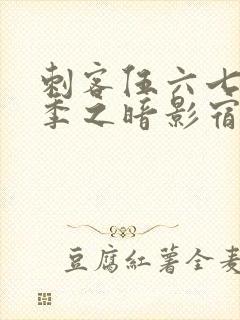 刺客伍六七
季之暗影宿
豆腐紅薯全麦